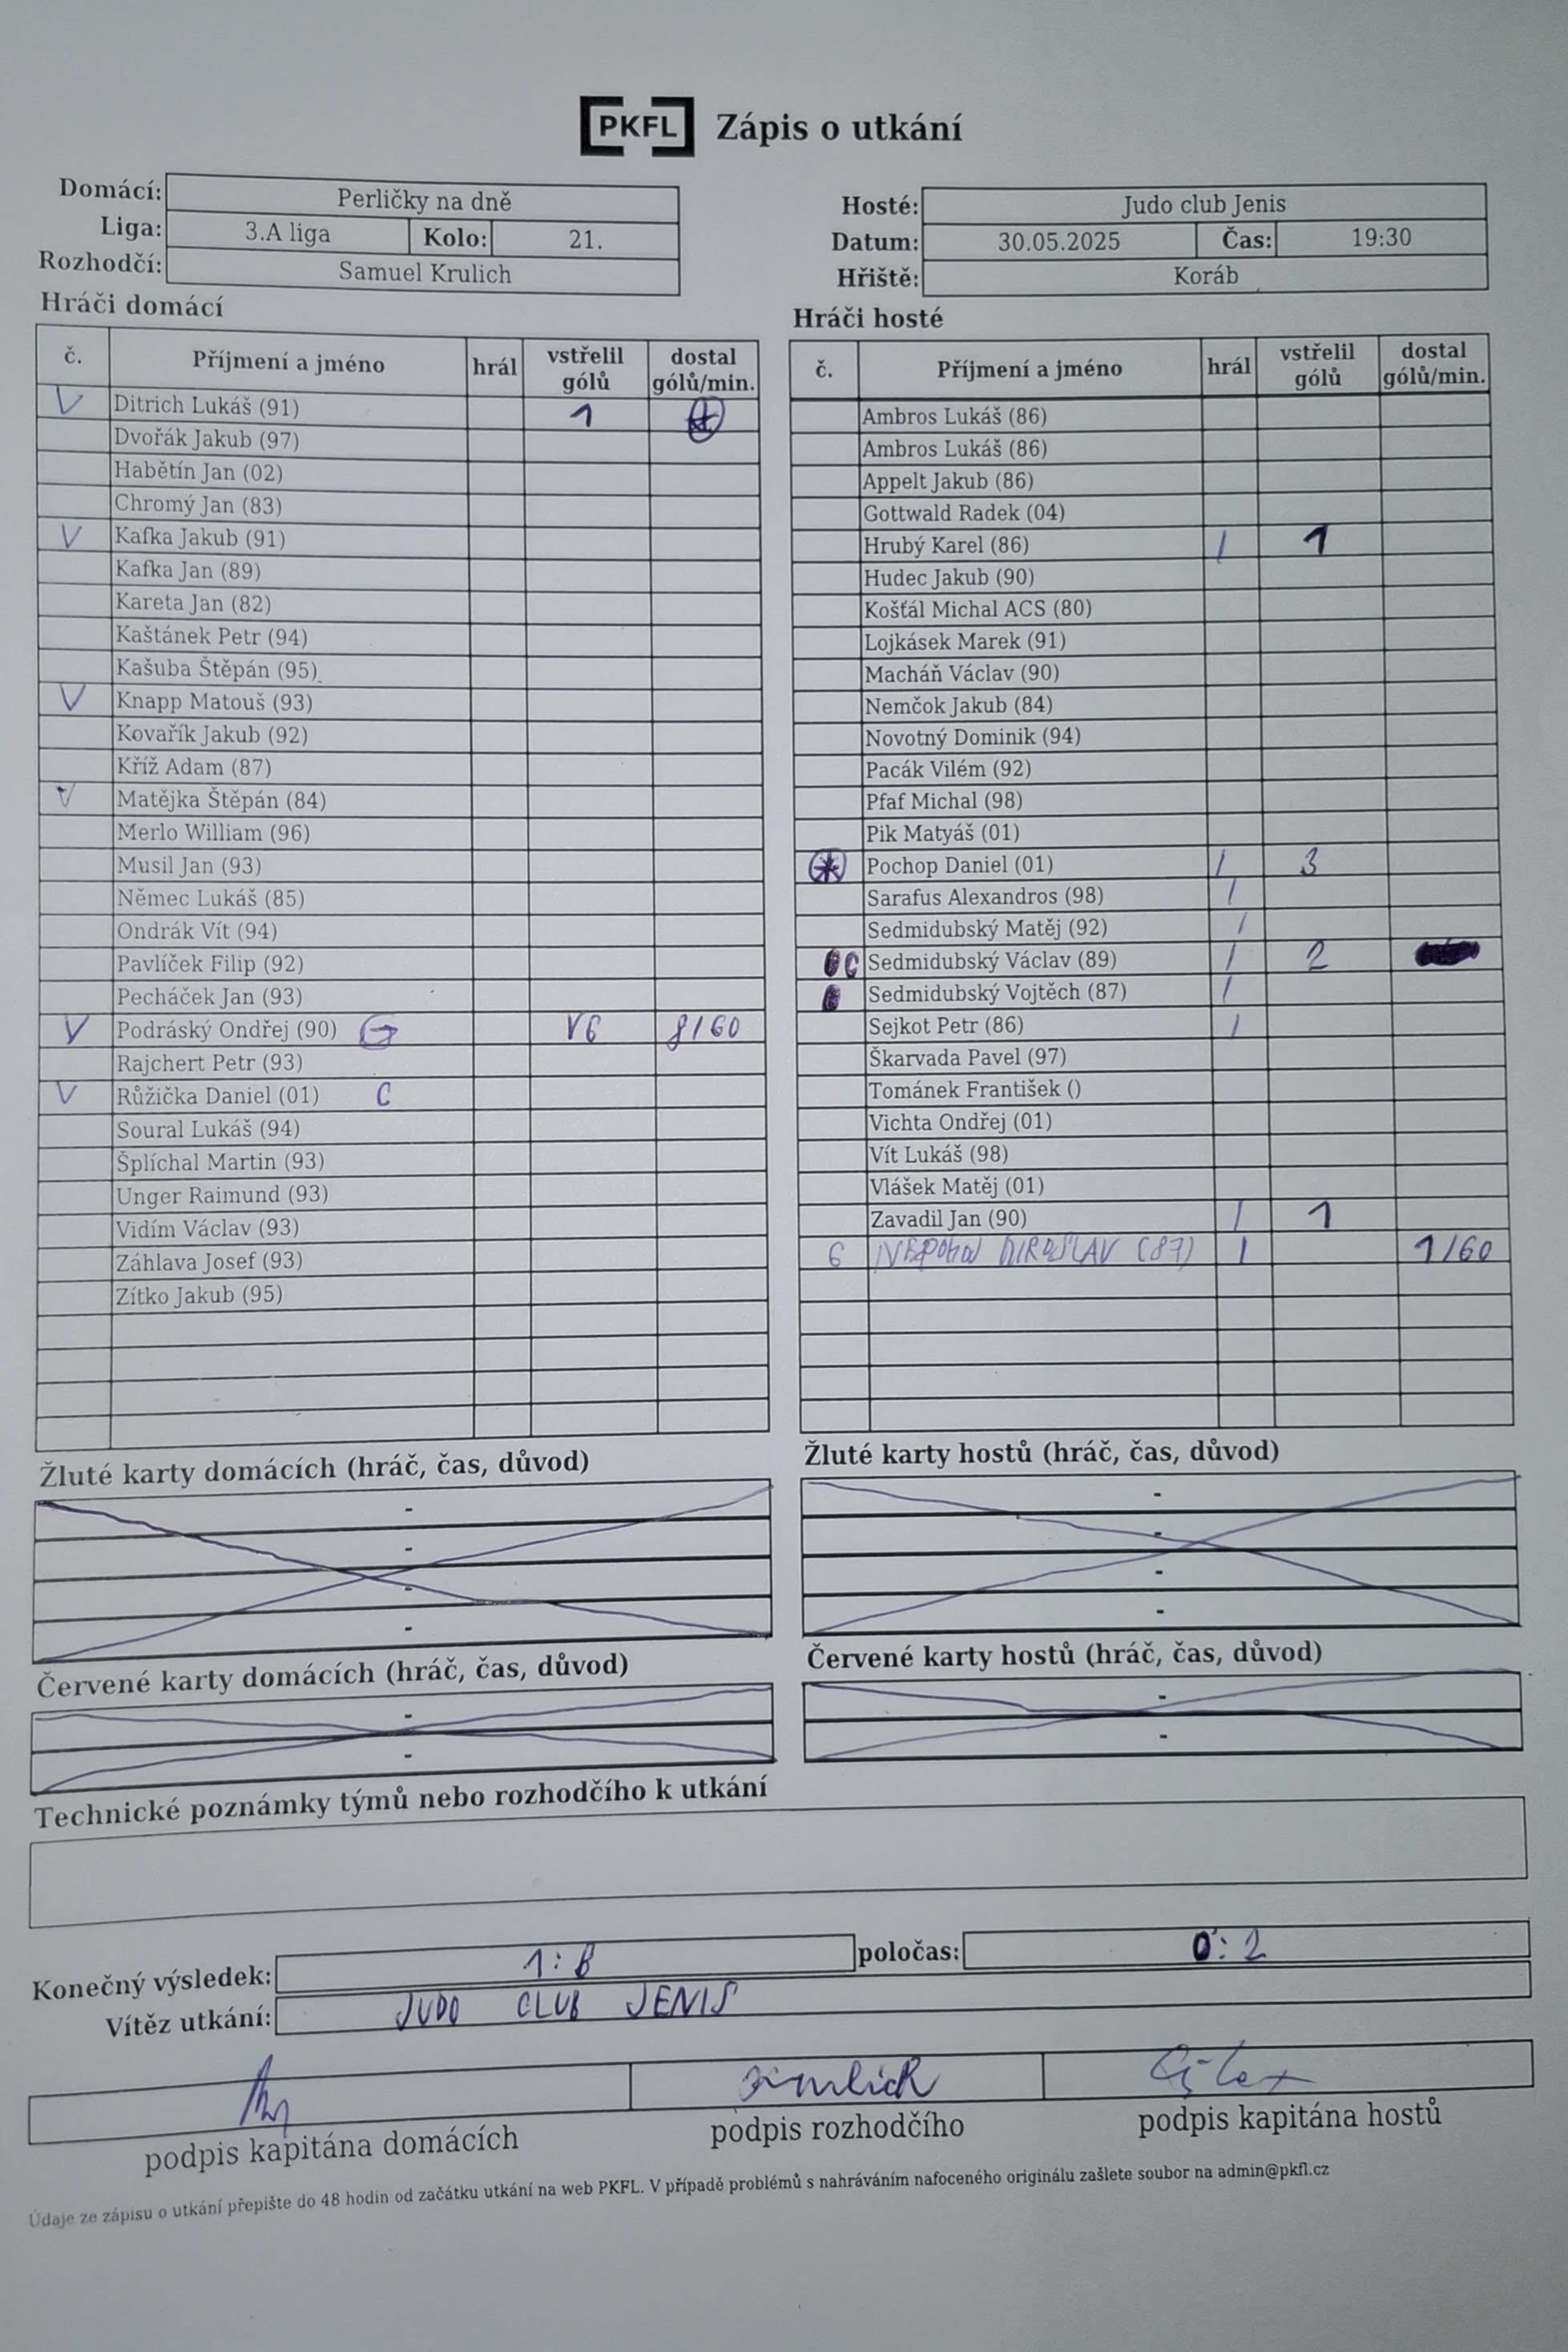 PKFL Zápis o utkání
Domácí: Perličky na dně
Liga: 3.A liga Kolo: 21.
Rozhodčí: Samuel Krulich
Hosté: Judo club Jenis
Datum: 30.05.2025 Čas: 19:30
Hřiště: Koráb
Hráči domácí
č. Příjmení a jméno hrál vstřelil gólů dostal gólů/min.
V Ditrich Lukáš (91) 1
Dvořák Jakub (97)
Habětín Jan (02)
Chromý Jan (83)
V Kafka Jakub (91)
Kafka Jan (89)
Kareta Jan (82)
Kaštánek Petr (94)
Kašuba Štěpán (95)
V Knapp Matouš (93)
Kovařík Jakub (92)
Kříž Adam (87)
V Matějka Štěpán (84)
Merlo William (96)
Musil Jan (93)
Němec Lukáš (85)
Ondrák Vít (94)
Pavlíček Filip (92)
Pecháček Jan (93)
V Podráský Ondřej (90) G 8/60
Rajchert Petr (93)
V Růžička Daniel (01) C
Soural Lukáš (94)
Šplíchal Martin (93)
Unger Raimund (93)
Vidím Václav (93)
Záhlava Josef (93)
Zítko Jakub (95)
Hráči hosté
č. Příjmení a jméno hrál vstřelil gólů dostal gólů/min.
Ambros Lukáš (86)
Ambros Lukáš (86)
Appelt Jakub (86)
Gottwald Radek (04)
Hrubý Karel (86) / 1
Hudec Jakub (90)
Košťál Michal ACS (80)
Lojkásek Marek (91)
Macháň Václav (90)
Nemčok Jakub (84)
Novotný Dominik (94)
Pacák Vilém (92)
Pfaf Michal (98)
Pik Matyáš (01)
Pochop Daniel (01) / 3
Sarafus Alexandros (98) /
Sedmidubský Matěj (92) /
C Sedmidubský Václav (89) / 2
Sedmidubský Vojtěch (87) /
Sejkot Petr (86) /
Škarvada Pavel (97)
Tománek František ()
Vichta Ondřej (01)
Vít Lukáš (98)
Vlášek Matěj (01)
Zavadil Jan (90) / 1
G MIROSLAV (87) / 1/60
Žluté karty domácích (hráč, čas, důvod)
-
-
-
-
Žluté karty hostů (hráč, čas, důvod)
-
-
-
-
Červené karty domácích (hráč, čas, důvod)
-
-
Červené karty hostů (hráč, čas, důvod)
-
-
Technické poznámky týmů nebo rozhodčího k utkání
Konečný výsledek: 1:8 poločas: 0:2
Vítěz utkání: JUDO CLUB JENIS
podpis kapitána domácích
podpis rozhodčího
podpis kapitána hostů
Údaje ze zápisu o utkání přepište do 48 hodin od začátku utkání na web PKFL. V případě problémů s nahráváním nafoceného originálu zašlete soubor na admin@pkfl.cz